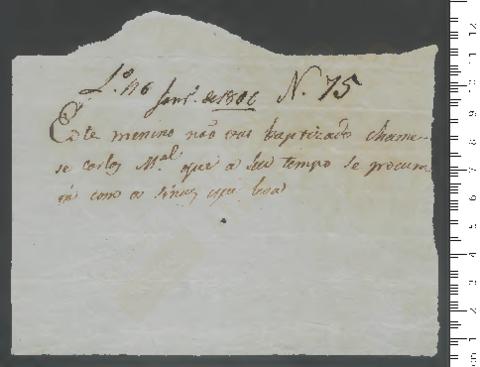 L.º 116 Janr.º de 1806 N. 75
Este menino não vai baptizado chame-
se Carlos M.al que a seu tempo se procura
rá com o sinal que